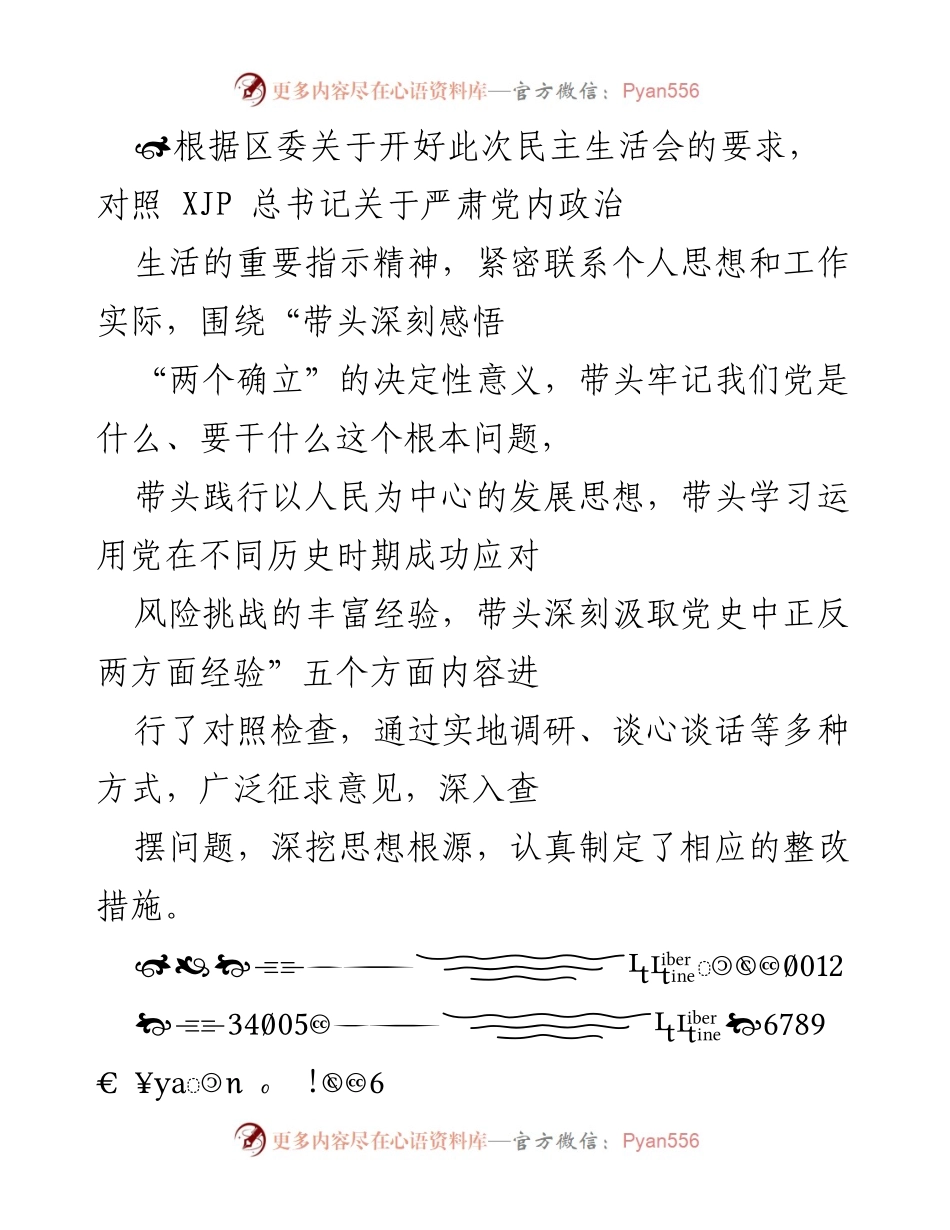 更多内容尽在心语资料库—官方微信：Pyan556
根据区委关于开好此次民主生活会的要求，
对照 XJP 总书记关于严肃党内政治
生活的重要指示精神，紧密联系个人思想和工作
实际，围绕“带头深刻感悟
“两个确立”的决定性意义，带头牢记我们党是
什么、要干什么这个根本问题，
带头践行以人民为中心的发展思想，带头学习运
用党在不同历史时期成功应对
风险挑战的丰富经验，带头深刻汲取党史中正反
两方面经验”五个方面内容进
行了对照检查，通过实地调研、谈心谈话等多种
方式，广泛征求意见，深入查
摆问题，深挖思想根源，认真制定了相应的整改
措施。
0012
34005
6789
€ ¥ya n 。 !
更多内容尽在心语资料库—官方微信：Pyan556